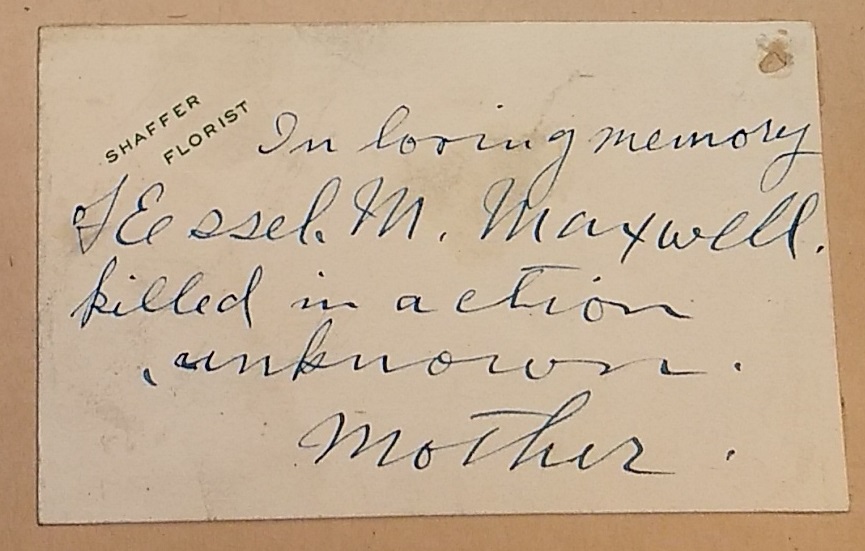 SHAFFER
FLORIST
In loving memory
of Eessel. M. Maxwell.
killed in action
unknown.
Mother.